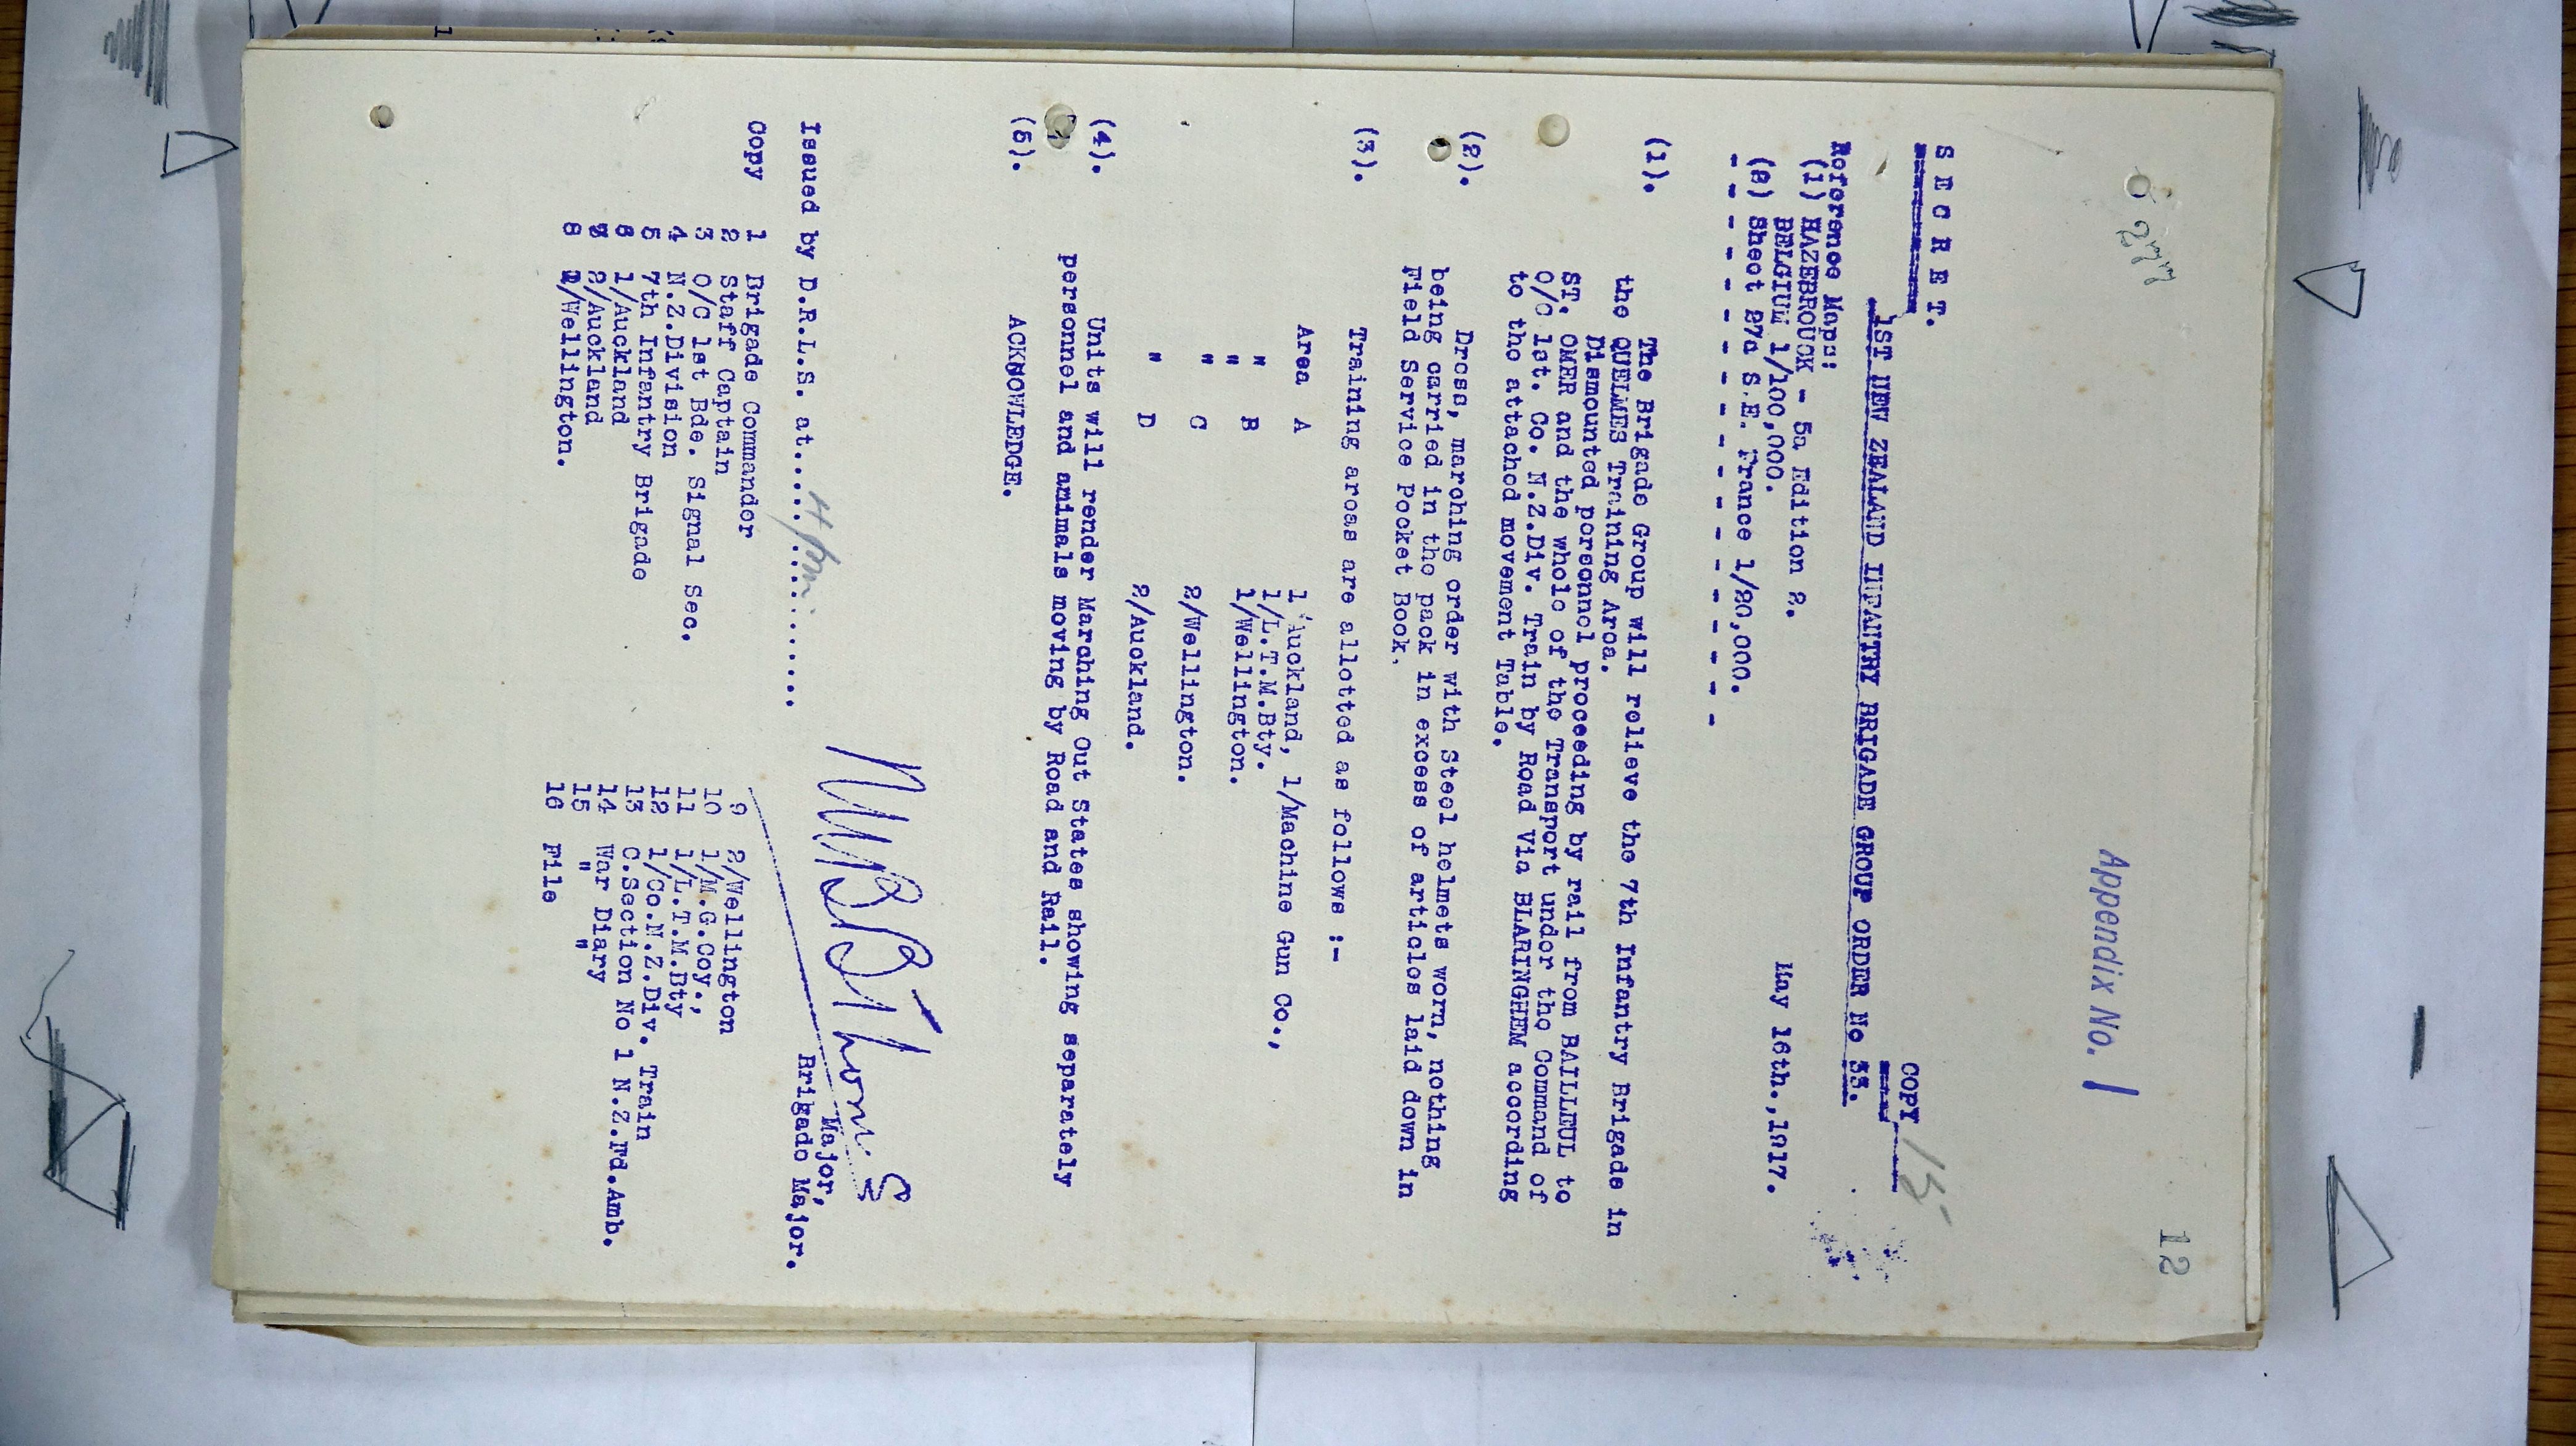 12
Appendix No. 1
SECRET.
COPY 15
1ST NEW ZEALAND INFANTRY BRIGADE GROUP ORDER No 33.
Reference Maps:
(1) HAZEBROUCK - 5a Edition 2.
BELGIUM 1/100,000.
May 16th.,1917.
(2) Sheet 27a S.E. France 1/20,000.
- - - - - - - - - - - - - - - - - -
(1). The Brigade Group will relieve the 7th Infantry Brigade in
the QUELMES Training Area.
Dismounted personnel proceeding by rail from BAILLEUL to
ST. OMER and the whole of the Transport under the Command of
O/C 1st. Co. N.Z.Div. Train by Road Via BLARINGHEM according
to the attached movement Table.
(2). Dress, marching order with Steel helmets worn, nothing
being carried in the pack in excess of articles laid down in
Field Service Pocket Book.
(3). Training areas are allotted as follows :-
Area A 1/Auckland, 1/Machine Gun Co.,
" 1/L.T.M.Bty.
" B 1/Wellington.
" C 2/Wellington.
" D 2/Auckland.
(4). Units will render Marching Out States showing separately
personnel and animals moving by Road and Rail.
(5). ACKNOWLEDGE.
Major,
Brigade Major.
Issued by D.R.L.S. at.................
Copy 1 Brigade Commander
2 Staff Captain
3 O/C 1st Bde. Signal Sec.
4 N.Z.Division
5 7th Infantry Brigade
6 1/Auckland
7 2/Auckland
8 1/Wellington.
9 2/Wellington
10 1/M.G.Coy.,
11 1/L.T.M.Bty
12 1/Co.N.Z.Div. Train
13 C.Section No 1 N.Z.Fd.Amb.
14 War Diary
15 " "
16 File